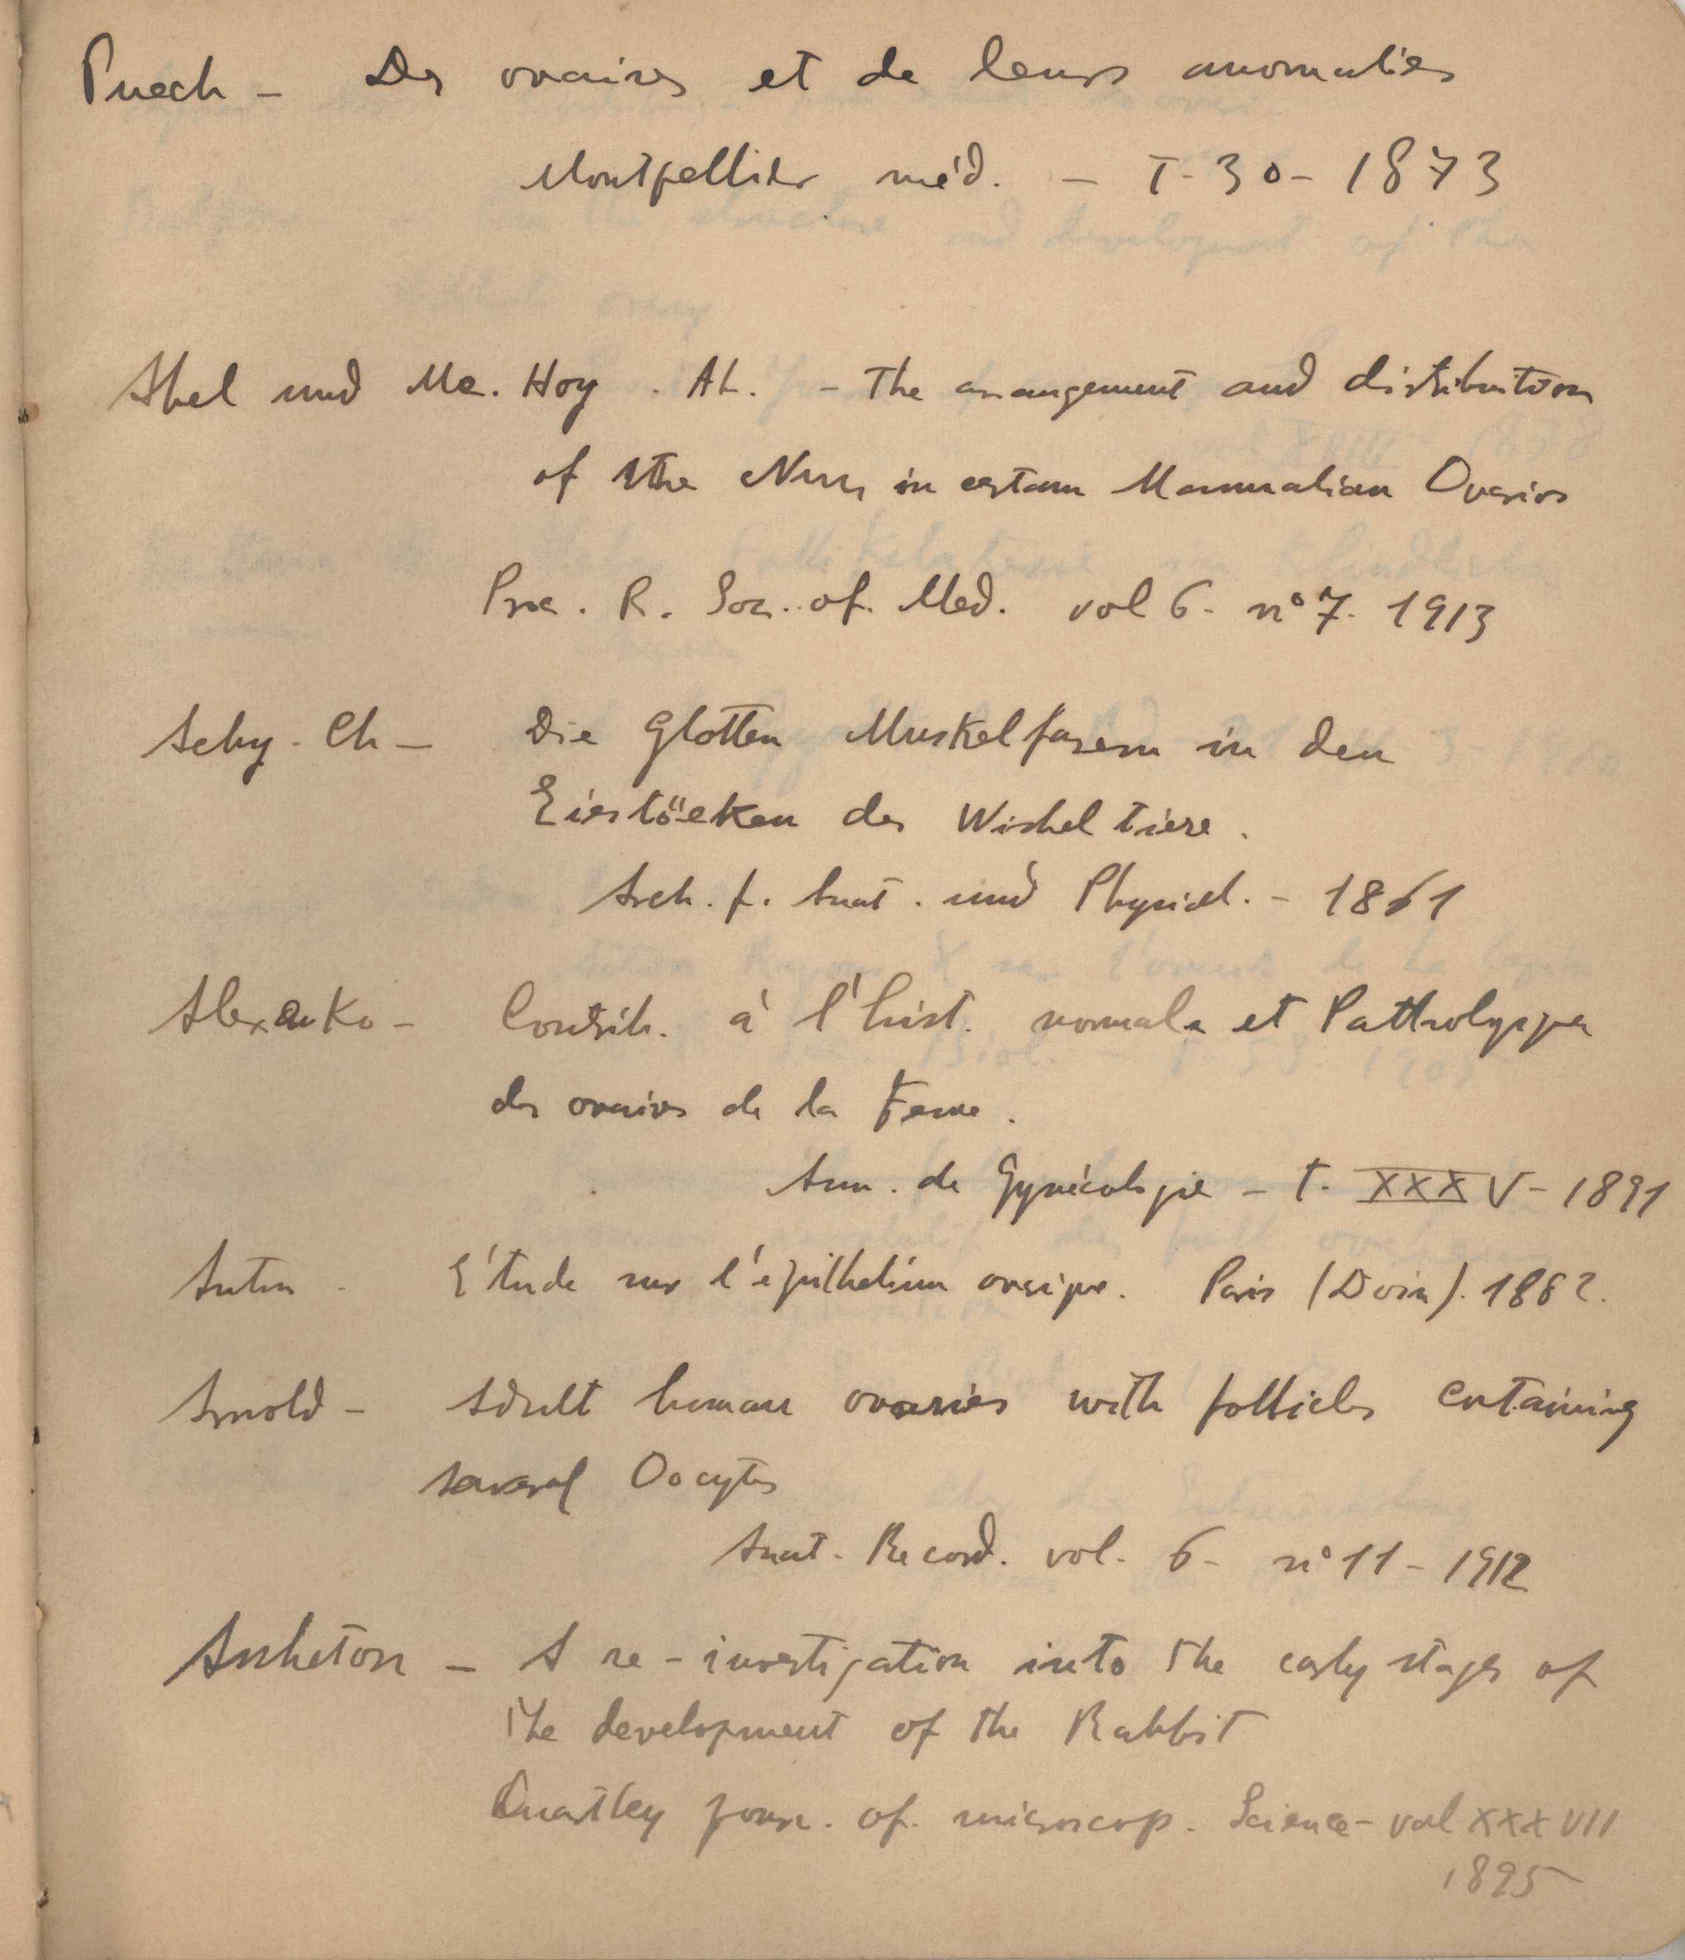 Puech - Des ovaires et de leurs anomalies
Montpellier méd. - T-30-1873
Abel und Mc. Hoy. Ah. - The arrangement and distribution
of the Nervs in certam Mammalian Ovaries
Proc. R. Soc. of. Med. vol 6. nº 7. 1913
Aeby. Ch - Die Glatten Muskelfasern in den
Eierstöcken der Wirbeltiere.
Arch. f. Anat. und Physiol. - 1861
Alexenko - Contrib. à l'hist. normale et Pathologique
des ovaires de la Feme.
Ann. de Gynécologie - T. XXXV - 1891
Autin. E'tude sur l'épithelium ovarique. Paris (Doin). 1882.
Arnold - Adult human ovaries with follicles containing
several Oocytes
Anat. Record. vol. 6 - nº 11 - 1912
Assheton - A re-investigation into the early stages of
the development of the Rabbit
Quartley journ. of. microscop. Science - vol XXXVII
1895